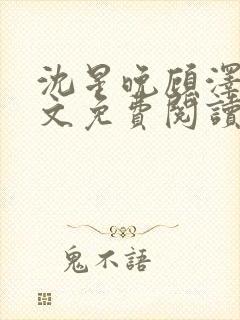 沈星晚顾泽
文免費閱讀
鬼不語